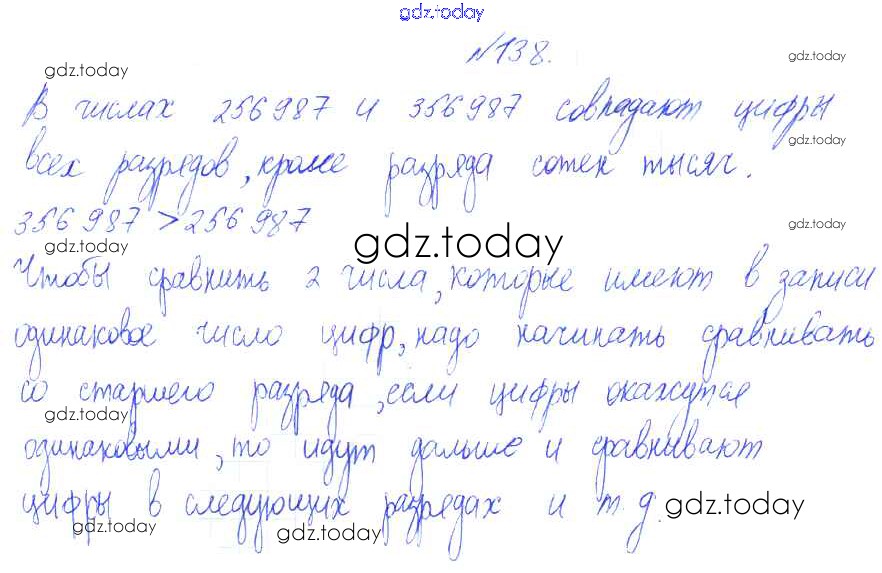 gdz.today
№138.
gdz.today
gdz.today
В числах 256987 и 356987 совпадают цифры
gdz.today
всех разрядов, кроме разряда сотен тысяч.
356987 > 256987
gdz.today
gdz.today
gdz.today
Чтобы сравнить 2 числа, которые имеют в записи
одинаковое число цифр, надо начинать сравнивать
со старшего разряда, если цифры окажутся
gdz.today
одинаковыми, то идут дальше и сравнивают
цифры в следующих разрядах и т.д.
gdz.today
gdz.today
gdz.today